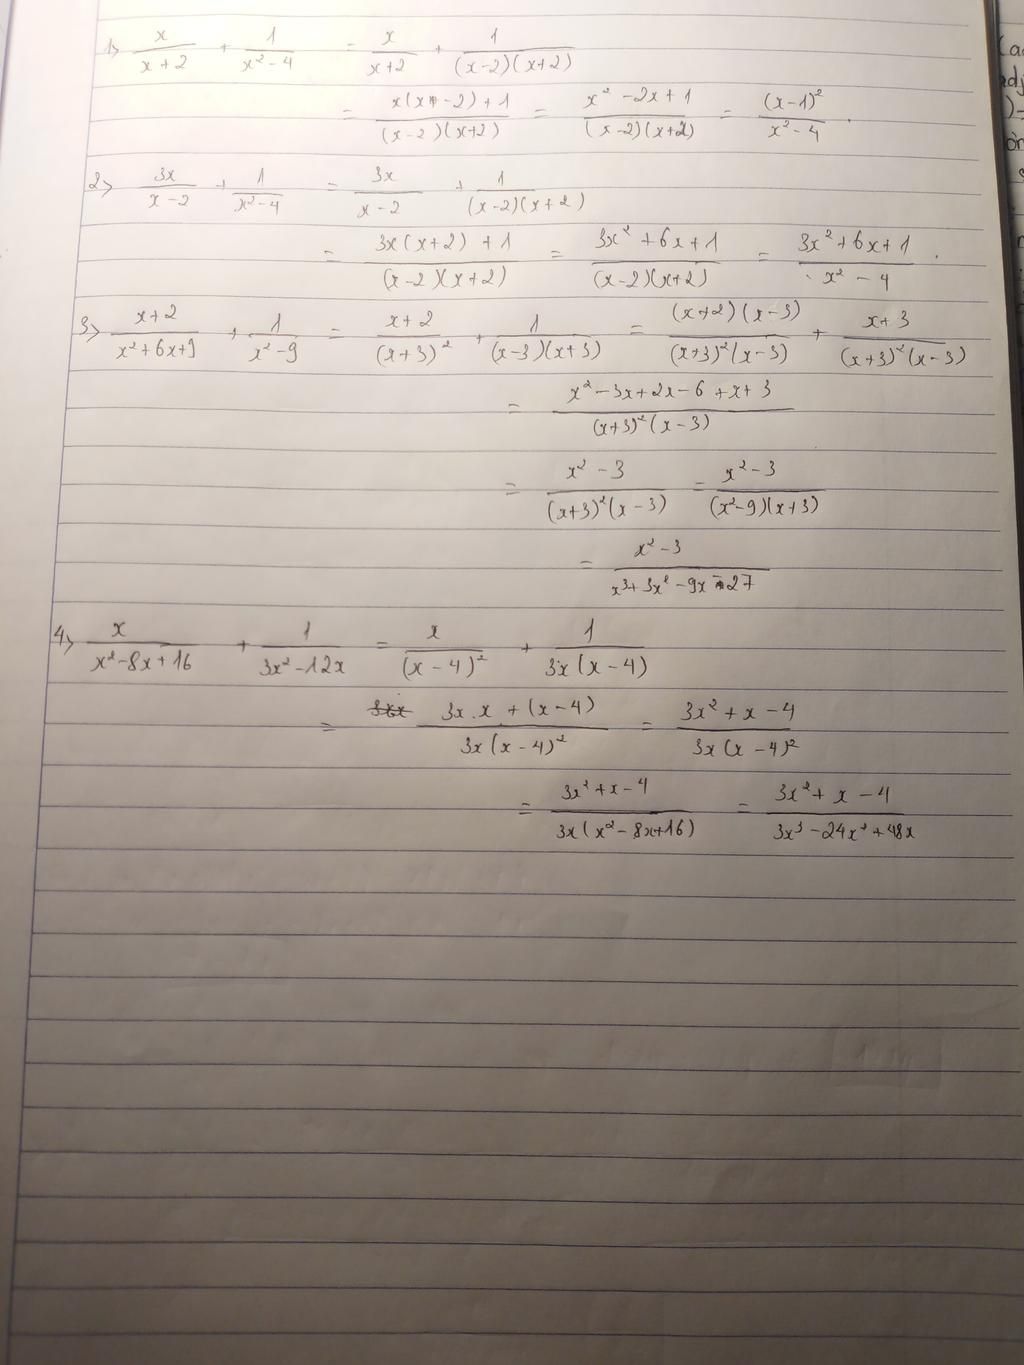 1> x/(x+2) + 1/(x²-4) = x/(x+2) + 1/((x-2)(x+2))
= (x(x-2)+1)/((x-2)(x+2)) = (x²-2x+1)/((x-2)(x+2)) = (x-1)²/(x²-4) .
2> 3x/(x-2) + 1/(x²-4) = 3x/(x-2) + 1/((x-2)(x+2))
= (3x(x+2)+1)/((x-2)(x+2)) = (3x²+6x+1)/((x-2)(x+2)) = (3x²+6x+1)/(x²-4) .
3> (x+2)/(x²+6x+9) + 1/(x²-9) = (x+2)/(x+3)² + 1/((x-3)(x+3)) = ((x+2)(x-3))/((x+3)²(x-3)) + (x+3)/((x+3)²(x-3))
= (x²-3x+2x-6+x+3)/((x+3)²(x-3))
= (x²-3)/((x+3)²(x-3)) = (x²-3)/((x²-9)(x+3))
= (x²-3)/(x³+3x²-9x-27)
4> x/(x²-8x+16) + 1/(3x²-12x) = x/(x-4)² + 1/(3x(x-4))
= (3x.x+(x-4))/(3x(x-4)²) = (3x²+x-4)/(3x(x-4)²)
= (3x²+x-4)/(3x(x²-8x+16)) = (3x²+x-4)/(3x³-24x²+48x)